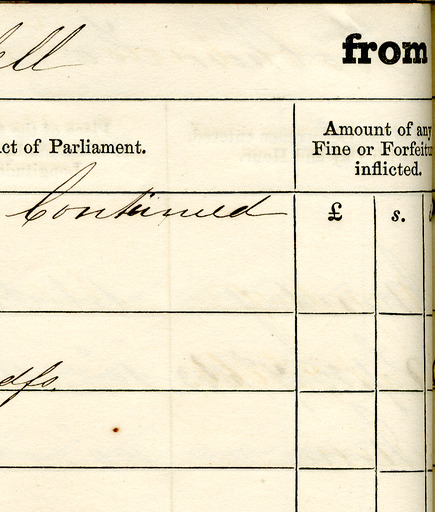 ell from
ct of Parliament. Amount of any
Fine or Forfeitu
inflicted.
Continued £ s.
dfs.